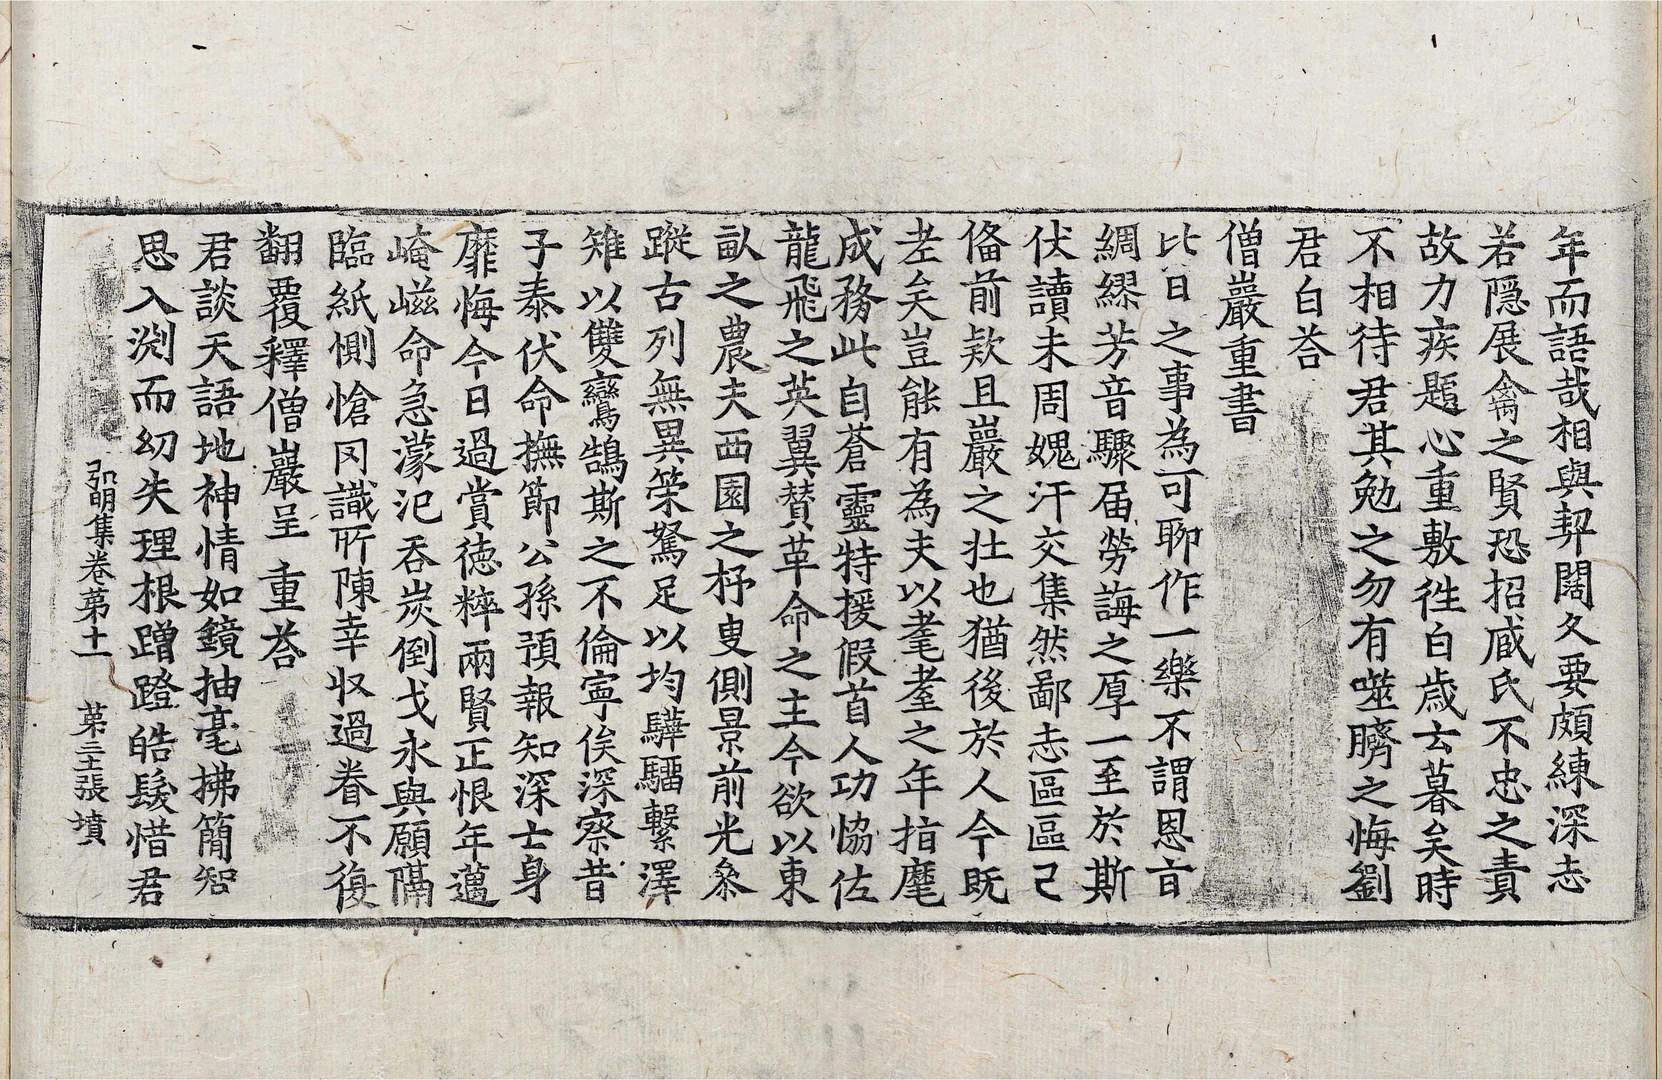 年而語哉相與契闊久要頗練深志
若隱展禽之賢恐招臧氏不忠之責
故力疾題心重敷徃白歲去暮矣時
不相待君其勉之勿有噬臍之悔劉
君白荅
僧巖重書
比日之事為可聊作一樂不謂恩旨
綢繆芳音驟届勞誨之厚一至於斯
伏讀未周媿汗交集然鄙志區區已
偹前欵且巖之壯也猶後於人今既
老矣豈能有為夫以耄耋之年指麾
成務此自蒼靈特援假首人功恊佐
龍飛之英翼賛革命之主今欲以東
畝之農夫西園之杼叟側景前光叅
蹤古列無異策駑足以均驊騮繫澤
雉以雙鸞鵠斯之不倫寧俟深察昔
子泰伏命撫節公孫預報知深士身
靡悔今日過賞徳粹兩賢正恨年邁
崦嵫命急濛汜吞炭倒戈永與願隔
臨紙惻愴罔識所陳幸収過眷不復
翻覆釋僧巖呈 重荅
君談天語地神情如鏡抽毫拂簡智
思入渕而幻失理根蹭蹬皓髮惜君
弘明集卷苐十一 苐三十張 墳